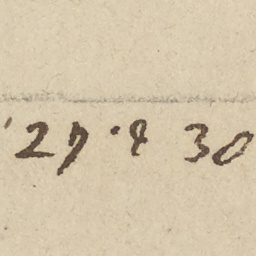 27 · 8 30